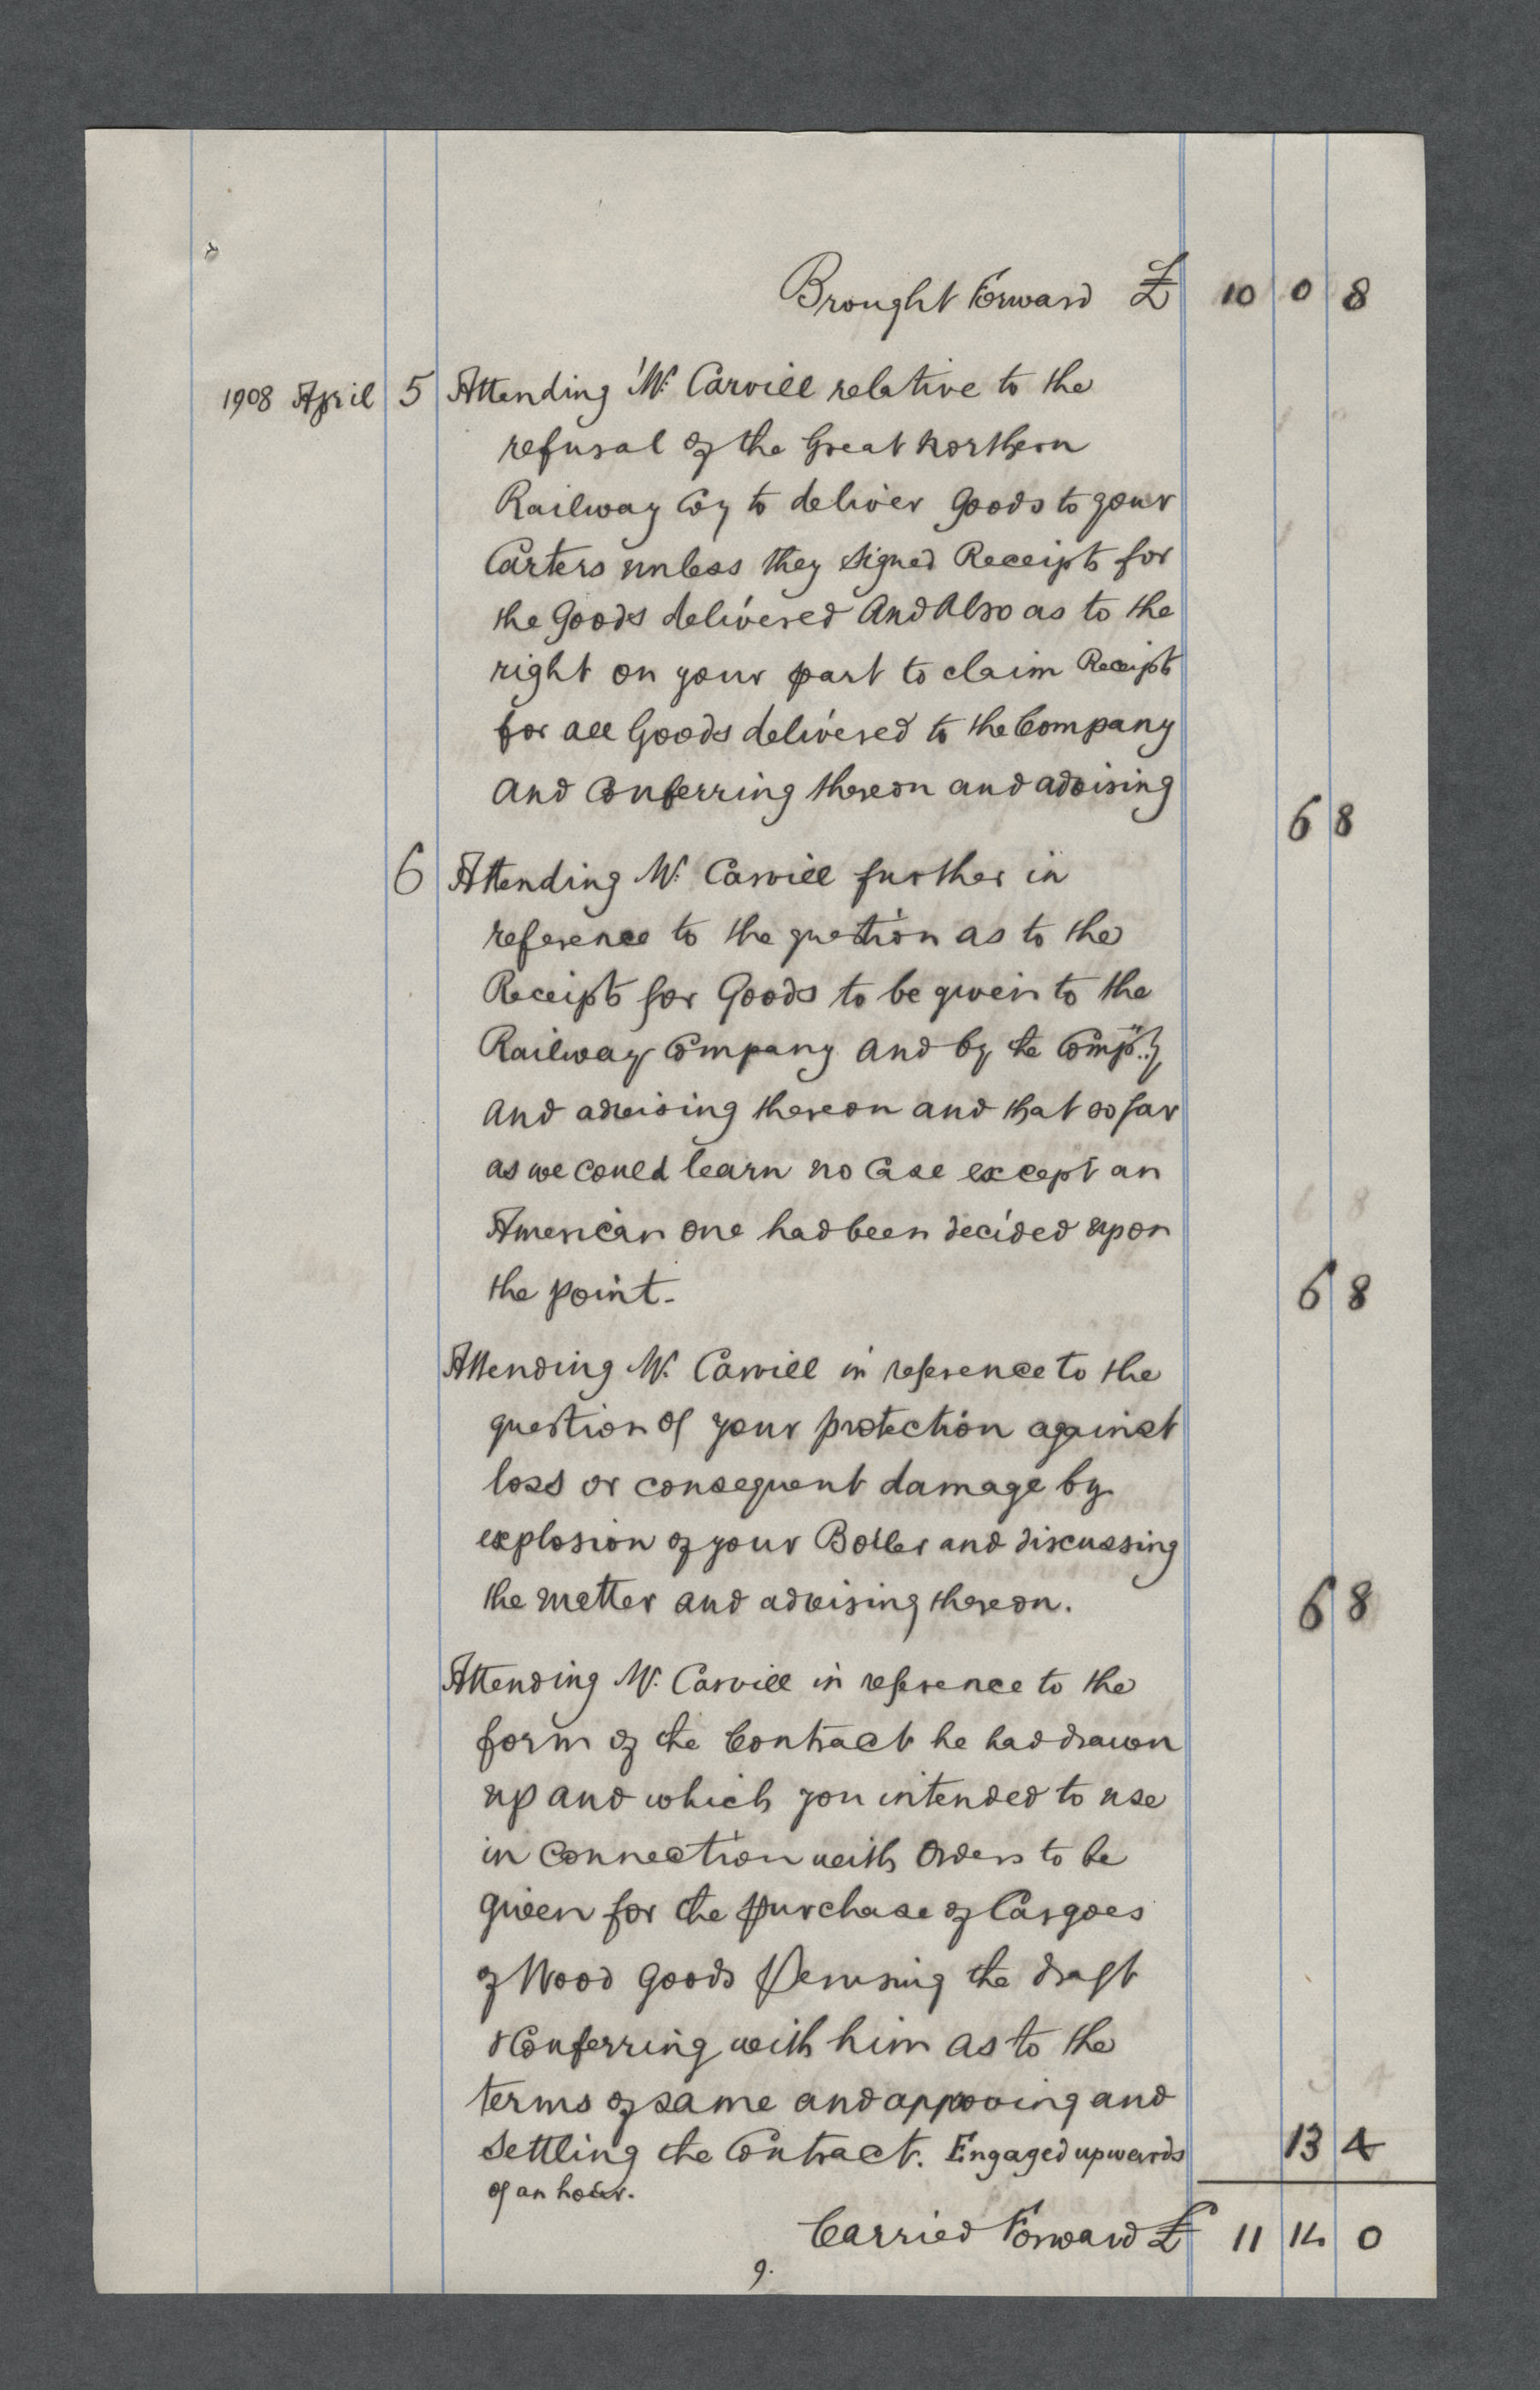 Brought Forward £ 10 0 8
1908 April 5 Attending Mr. Carvill relative to the
refusal of the Great Northern
Railway Coy to deliver Goods to your
Carters unless they signed Receipts for
the Goods delivered And Also as to the
right on your part to claim Receipts
for all Goods delivered to the Company
and Conferring thereon and advising 6 8
6 Attending Mr. Carvill further in
reference to the question as to the
Receipts for Goods to be given to the
Railway Company and by the Compy
and advising thereon and that so far
as we could learn no Case except an
American one had been decided upon
the point. 6 8
Attending Mr. Carvill in reference to the
question of your protection against
loss or consequent damage by
explosion of your Boiler and discussing
the matter and advising thereon. 6 8
Attending Mr. Carvill in reference to the
form of the Contract he had drawn
up and which you intended to use
in connection with Orders to be
given for the purchase of Cargoes
of Wood Goods Perusing the draft
& Conferring with him as to the
terms of same and approving and
settling the Contract. Engaged upwards 13 4
of an hour.
Carried Forward £ 11 14 0
9.